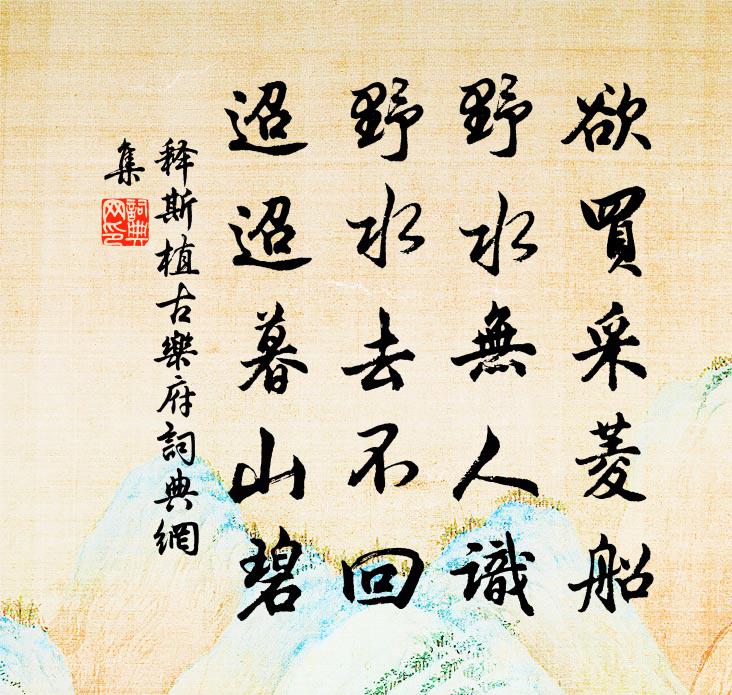 欲買采菱船
野水無人識
野水去不回
迢迢暮山碧
释斯植古樂府詞典網
集
詞典
网印